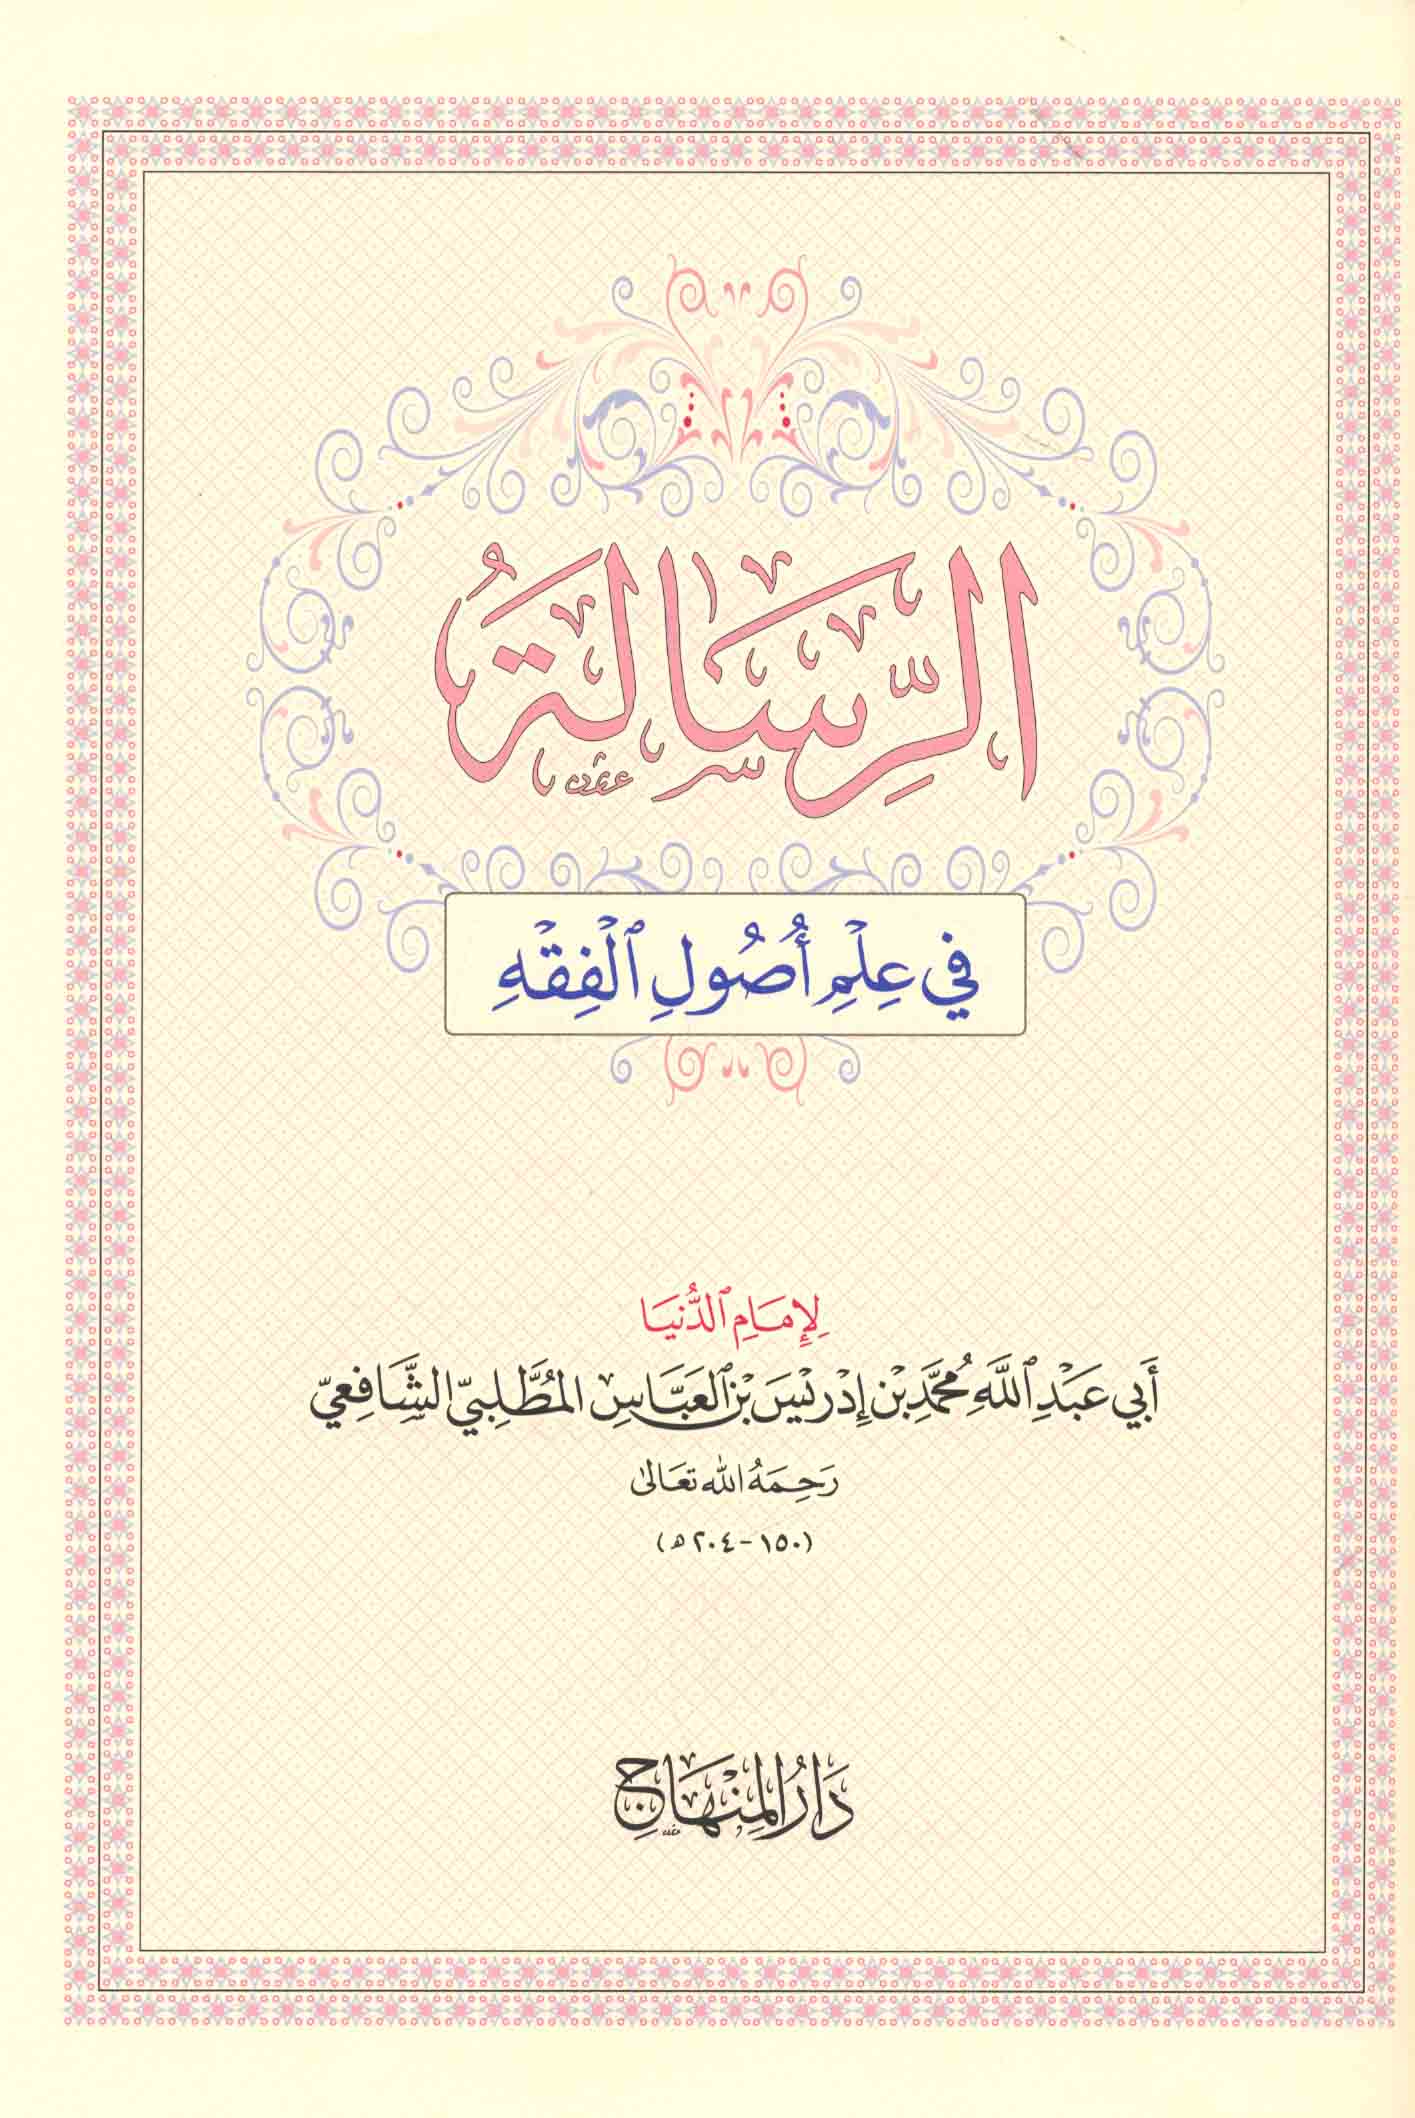 الرِّسَالَةُ
فِي عِلْمِ أُصُولِ ٱلْفِقْهِ
لِإِمَامِ ٱلدُّنْيَا
أَبِي عَبْدِ ٱللَّهِ مُحَمَّدِ بْنِ إِدْرِيْسَ بْنِ ٱلْعَبَّاسِ المُطَّلِبِيّ الشَّافِعِيّ
رَحِمَهُ الله تعَالىٰ
(١٥٠-٢٠٤ هـ)
دَارُ المِنْهَاجِ